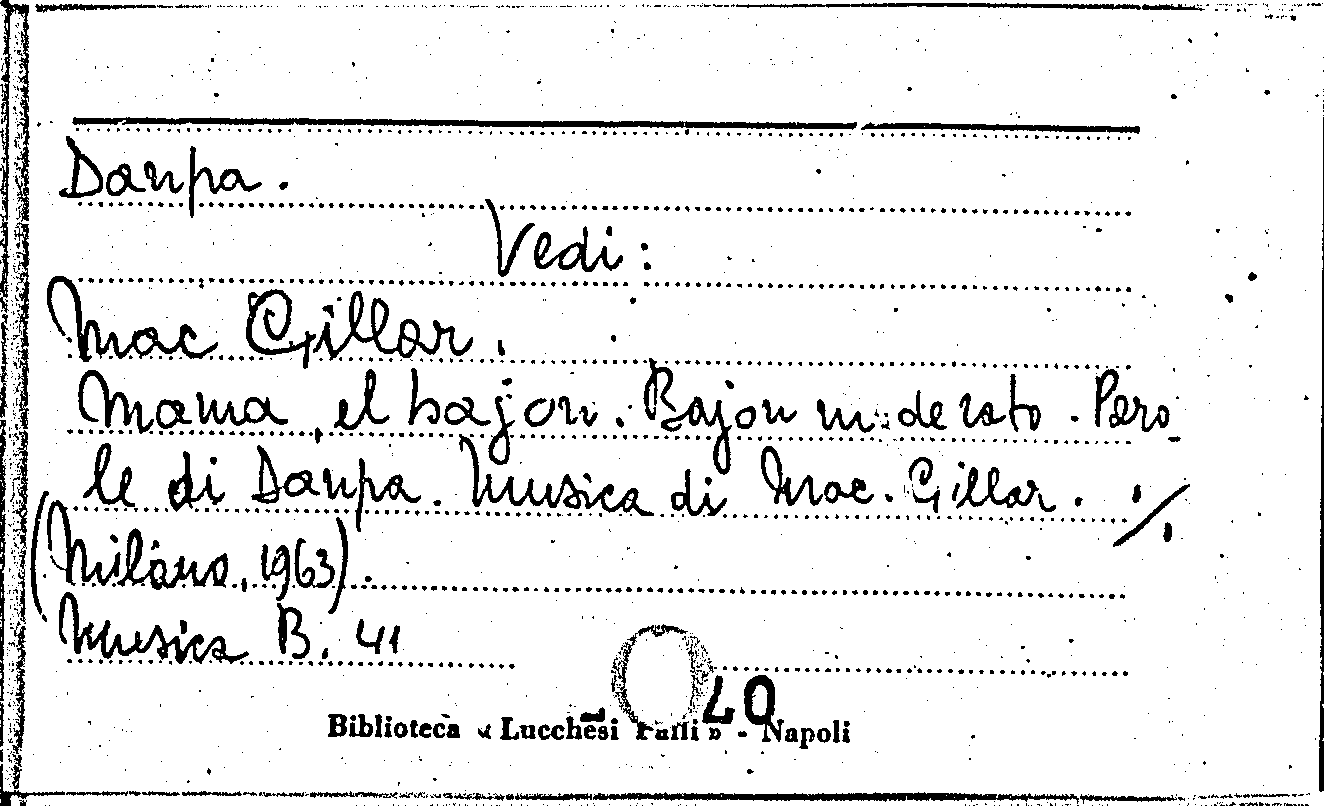 Danpa.
Vedi:
Mac Gillar.
Mama, el bajon. Bajon moderato. Paro_
le di Danpa. Musica di Mac. Gillar. ./.
(Milano, 1963).
Musica B. 41
40
Biblioteca « Lucchesi Palli » - Napoli